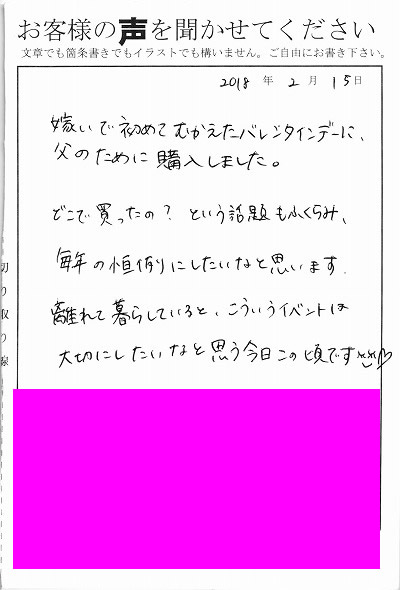 お客様の声を聞かせてください
文章でも箇条書きでもイラストでも構いません。ご自由にお書き下さい。
2018 年 2 月 15 日
嫁いで初めてむかえたバレンタインデーに、
父のために購入しました。
どこで買ったの？という話題もふくらみ、
毎年の恒例にしたいなと思います.
離れて暮らしていると、こういうイベントは
大切にしたいなと思う今日この頃です♡
切り取り線